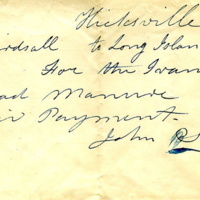 Hicksville
irdsall to Long Islan
For the Iran
ad Manure
ir Payment.
John R